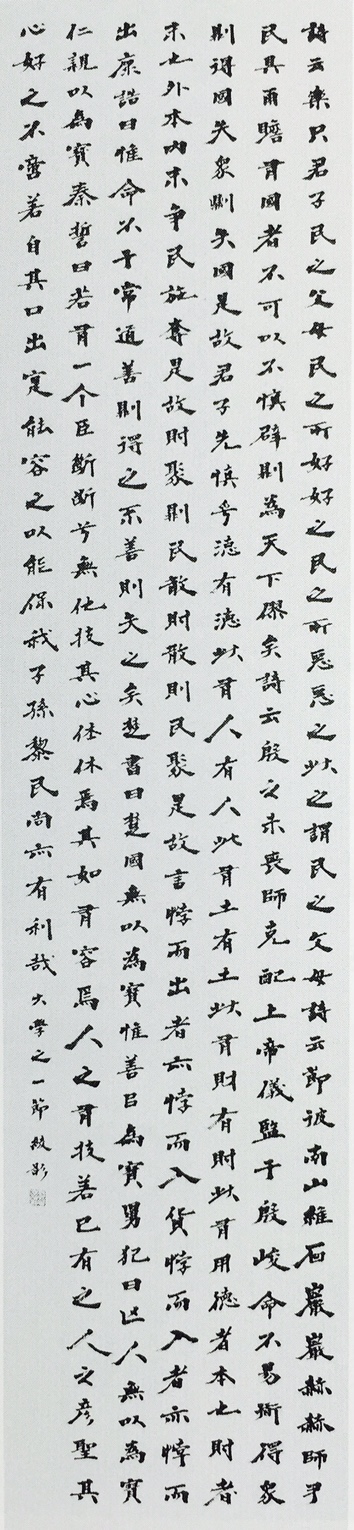 詩云樂只君子民之父母民之所好好之民之所惡惡之此之謂民之父母詩云節彼南山維石巖巖赫赫師尹
民具爾瞻有國者不可以不慎辟則為天下僇矣詩云殷之未喪師克配上帝儀監于殷峻命不易道得眾
則得國失眾則失國是故君子先慎乎德有德此有人有人此有土有土此有財有財此有用德者本也財者
末也外本內末爭民施奪是故財聚則民散財散則民聚是故言悖而出者亦悖而入貨悖而入者亦悖而
出康誥曰惟命不于常道善則得之不善則失之矣楚書曰楚國無以為寶惟善以為寶舅犯曰亡人無以為寶
仁親以為寶秦誓曰若有一个臣斷斷兮無他技其心休休焉其如有容焉人之有技若己有之人之彥聖其
心好之不啻若自其口出寔能容之以能保我子孫黎民尚亦有利哉大學之一節